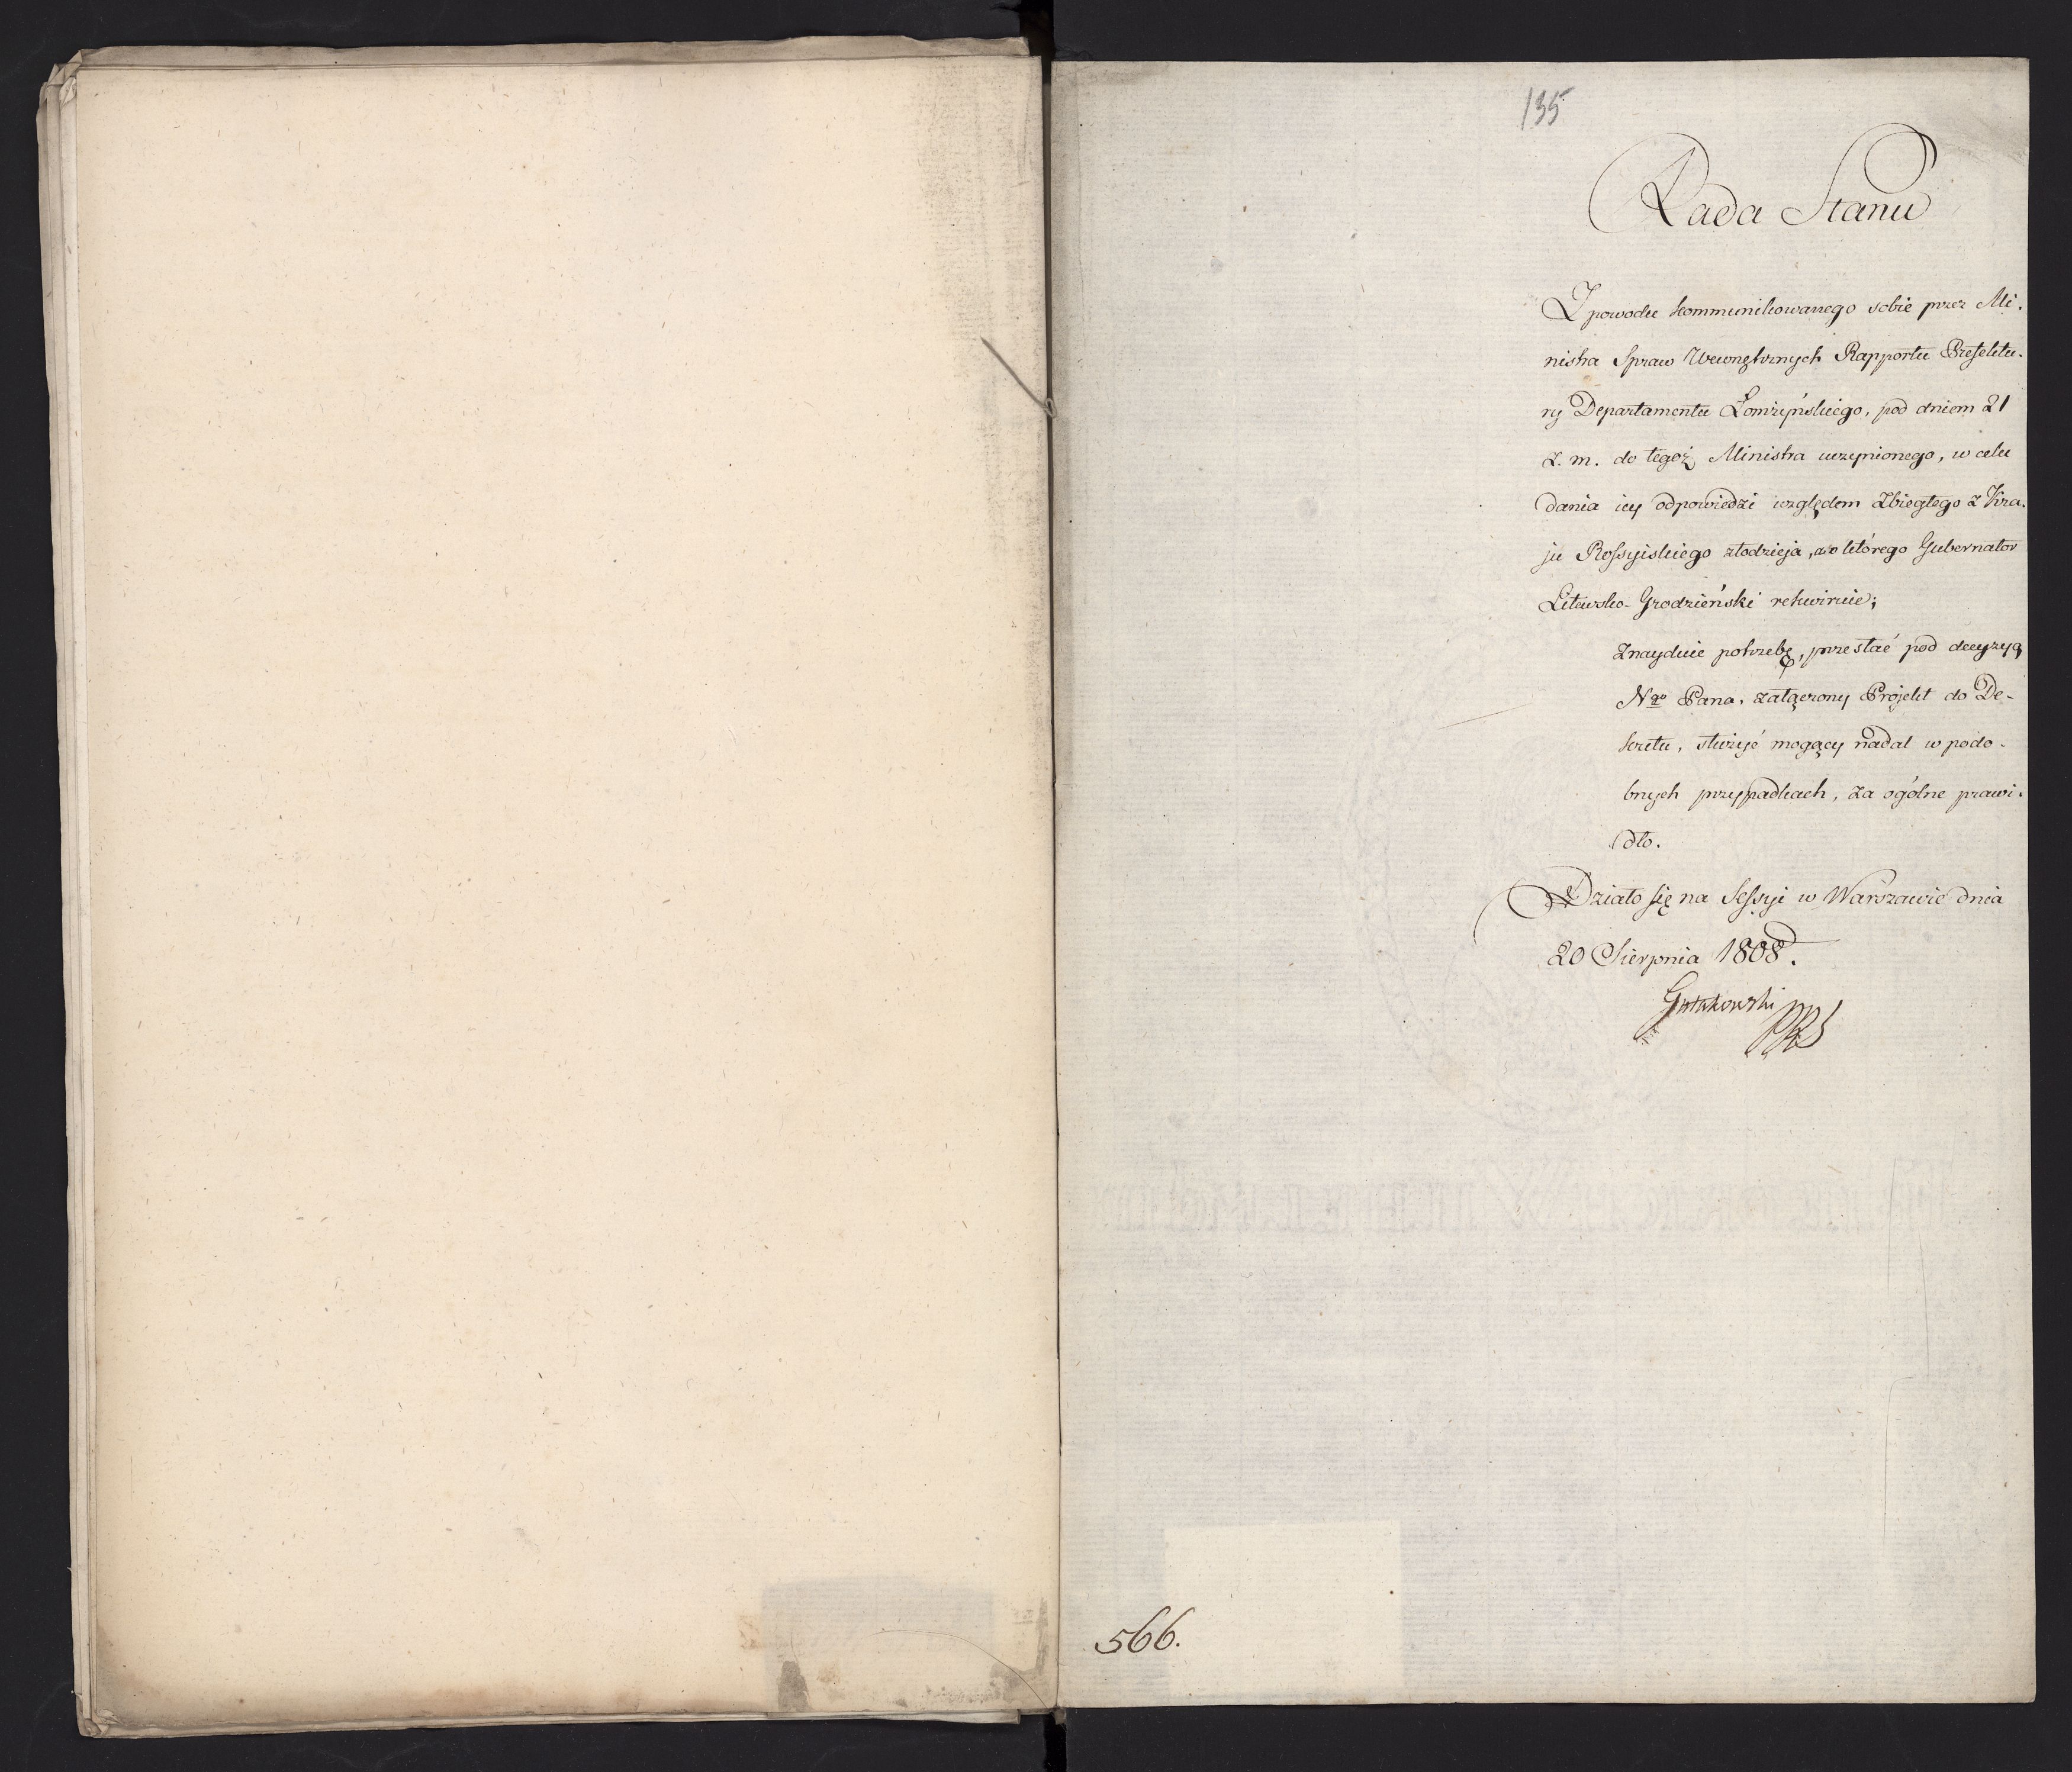 135
Rada Stanu
Z powodu kommunikowanego sobie przez Mi-
nistra Spraw Wewnętrznych Rapportu Prefektu-
ry Departamentu Łomżyńskiego, pod dniem 21
z. m. do tegoż Ministra uczynionego, w celu
dania iey odpowiedzi względem zbiegłego z Kra-
ju Rossyiskiego złodzieja, o którego Gubernator
Litewsko-Grodzieński rekwiruie;
Znayduie potrzebę, przesłać pod decyzyą
Ngo Pana, załączony Projekt do De-
kretu, służyć mogący nadal w podo-
bnych przypadkach, za ogólne prawi-
dło.
Działo się na Sessyi w Warszawie dnia
20 Sierpnia 1808.
Gutakowski
PRS
566.